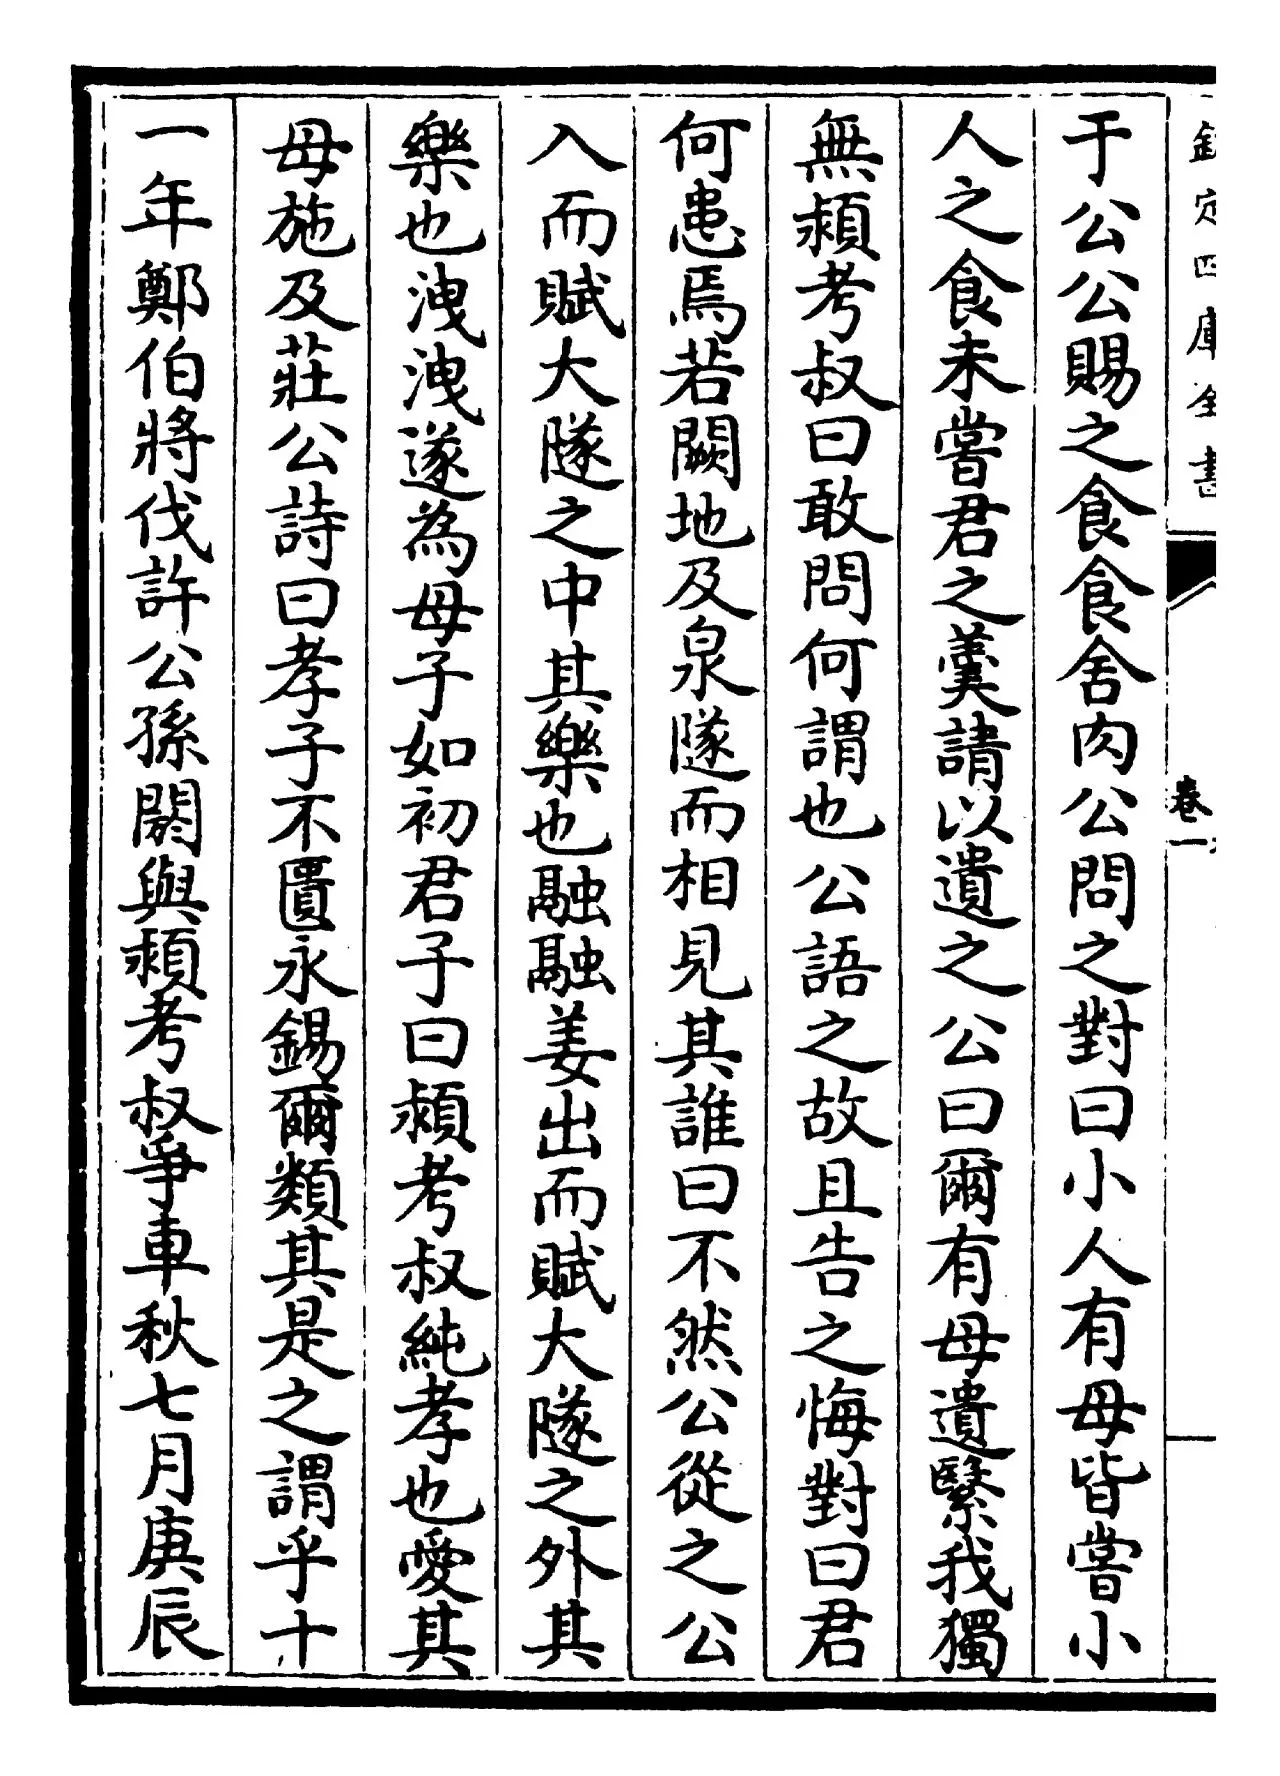 欽定四庫全書
卷一
于公公賜之食食舍肉公問之對曰小人有母皆嘗小
人之食未嘗君之羹請以遺之公曰爾有母遺繄我獨
無潁考叔曰敢問何謂也公語之故且告之悔對曰君
何患焉若闕地及泉隧而相見其誰曰不然公從之公
入而賦大隧之中其樂也融融姜出而賦大隧之外其
樂也洩洩遂為母子如初君子曰潁考叔純孝也愛其
母施及莊公詩曰孝子不匱永錫爾類其是之謂乎十
一年鄭伯將伐許公孫閼與潁考叔爭車秋七月庚辰